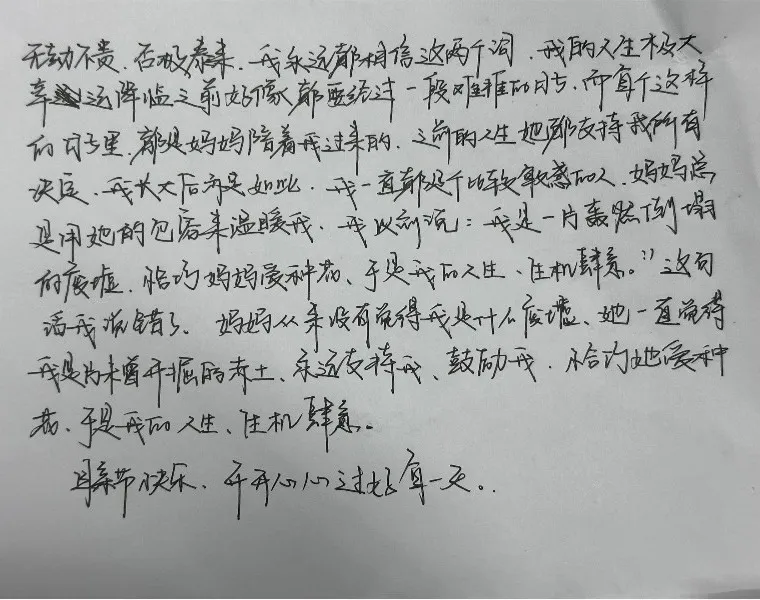 无功不贵、否极泰来、我永远都相信这两个词、我的人生极大
幸运降临之前好像都要经过一段难捱的日子、而每个这样
的日子里、都是妈妈陪着我过来的、之前的人生她都支持我所有
决定、我长大后亦是如此、我一直都是个比较敏感的人、妈妈总
是用她的包容来温暖我、我以前说：我是一片轰然倒塌
的废墟、恰巧妈妈爱种花、于是我的人生、生机肆意。”这句
话我说错了、妈妈从来没有觉得我是什么废墟、她一直觉得
我是片未曾开掘的赤土、永远支持我、鼓励我、恰巧她爱种
花、于是我的人生、生机肆意。
母亲节快乐、开开心心过好每一天。